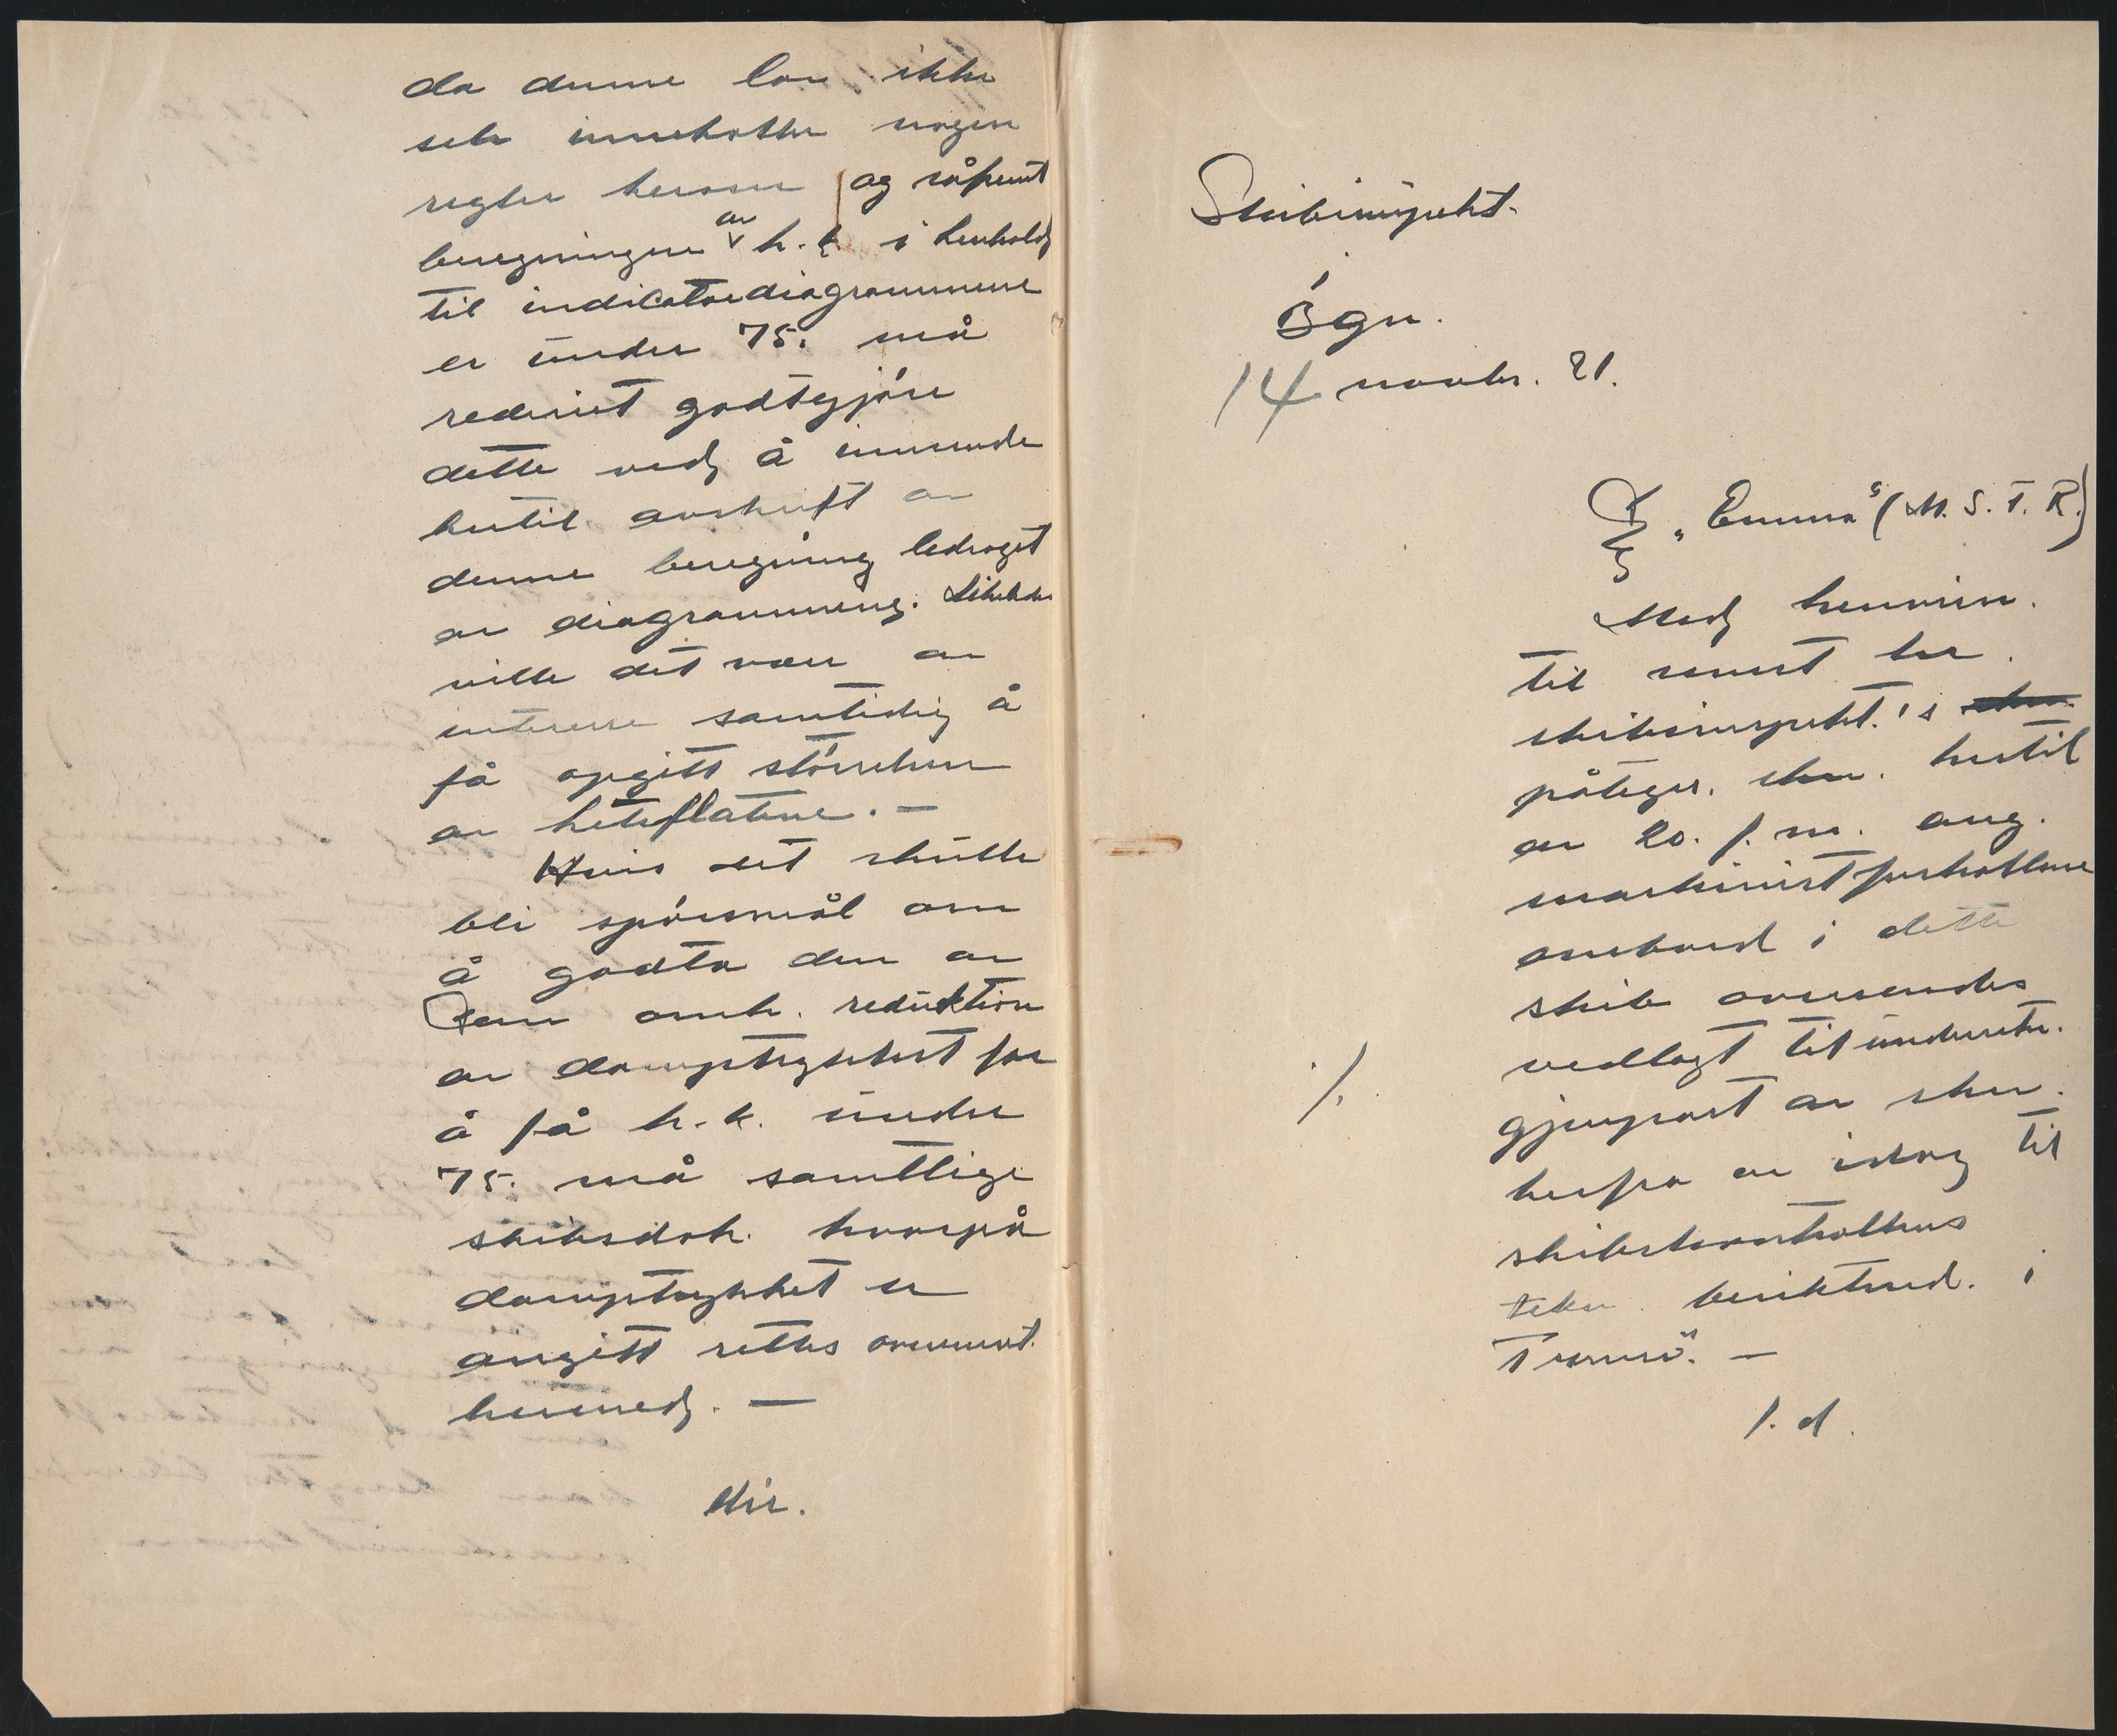 da denne lov ikke
selv inneholder nogen
regler herom og såfremt
beregningene av h.k. i henhold
til indicatordiagrammene
er under 75. må
rederiet godtgjøre
dette ved å innsende
hertil avskrift av
denne beregning ledsaget
av diagrammene.
ville det være av
interesse samtidig å
få opgitt størrelsen
av heteflatene. —
Hvis det skulle
bli spørsmål om
å godta den av
Dem omh. reduktion
av damptrykket for
å få h.k. under
75. må samtlige
skibsdok. hvorpå
damptrykket er
angitt rettes overenst.
hermed. —
dir.
Skibsinspekt.
Ögn.
14 novbr. 21.
D/S „Emma" (M. S. T. R.)
Med henvisn.
til senest her
skibsinspekt.'s
påtegn. skr. hertil
av 20. f. m. ang.
maskinistforholdene
ombord i dette
skib oversendes
vedlagt til underretn.
gjenpart av skr.
herfra av idag til
skibskontrollens
tekn. beriktend. i
Tromsö. —
f. d.